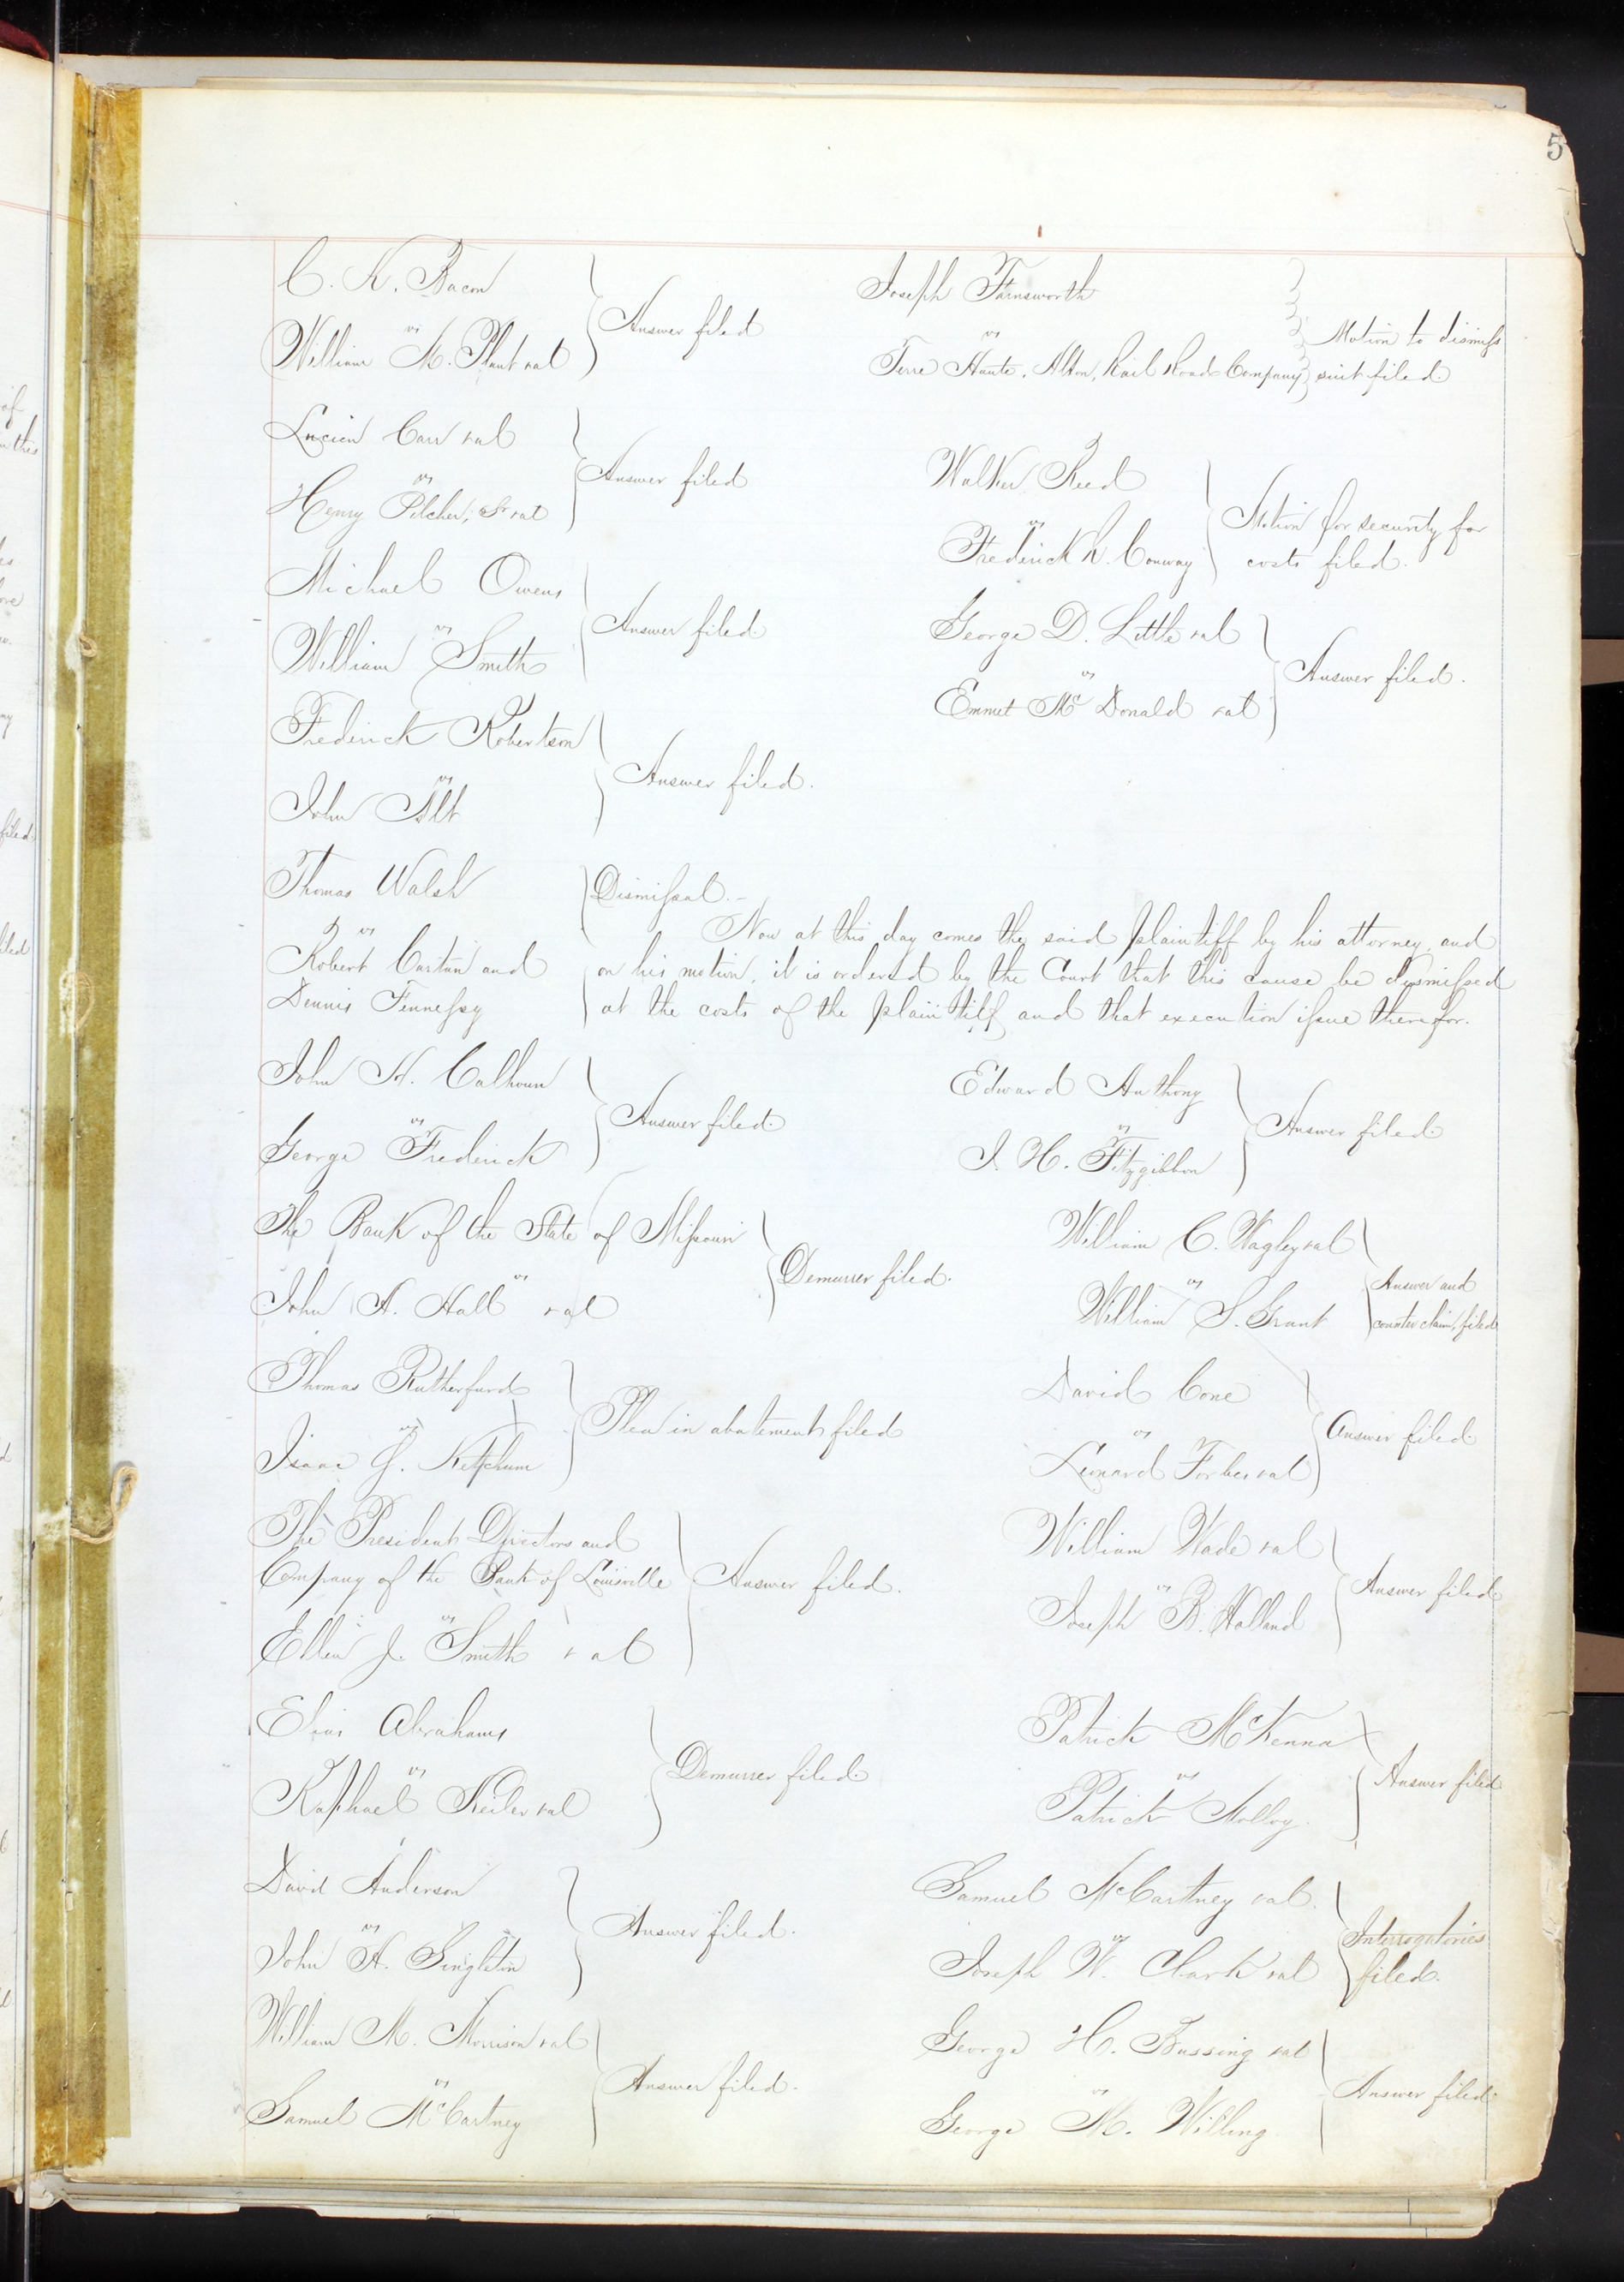 5
C. K. Bacon
vs
William M. Plant et al
Answer filed
Joseph Farnsworth
vs
Terre Haute, Alton, Rail Road Company
Motion to dismiss
suit filed.
Lucien Carr et al
vs
Henry Pilcher, Sr et al
Answer filed
Walker Reed
vs
Frederick R. Conway
Motion for security for
costs filed.
Michael Owens
vs
William Smith
Answer filed.
George D. Little et al
vs
Emmet McDonald et al
Answer filed.
Frederick Robertson
vs
John Alt
Answer filed.
Thomas Walsh
vs
Robert Cartan and
Dennis Fennessy
Dismissal.
Now at this day comes the said plaintiff by his attorney, and
on his motion, it is ordered by the Court that this cause be dismissed
at the costs of the plaintiff and that execution issue therefor.
John H. Calhoun
vs
George Frederick
Answer filed.
Edward Anthony
vs
J. H. Fitzgibbon
Answer filed.
The Bank of the State of Missouri
vs
John A. Hall et al
Demurrer filed.
William C. Wagley et al
vs
William S. Grant
Answer and
counter claim, filed
Thomas Rutherfurd
vs
Isaac J. Ketchum
Plea in abatement filed
David Cone
vs
Leonard Forbes et al
Answer filed.
The President Directors and
Company of the Bank of Louisville
vs
Ellen J. Smith et al
Answer filed.
William Wade et al
vs
Joseph B. Holland
Answer filed.
Elias Abrahams
vs
Raphael Keiler et al
Demurrer filed.
Patrick McKenna
vs
Patrick Molloy.
Answer filed.
David Anderson
vs
John A. Singleton
Answer filed.
Samuel McCartney et al.
vs
Joseph W. Clark et al
Interrogatories
filed.
William M. Morrison et al
vs
Samuel McCartney
Answer filed.
George H. Bussing et al
vs
George M. Willing
Answer filed.